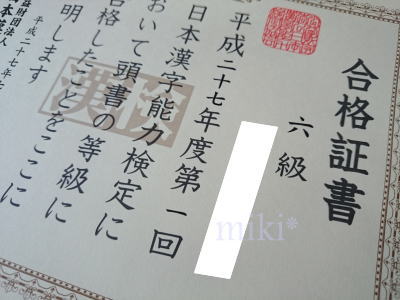 合格証書
六級
miki*
平成二十七年度第一回
日本漢字能力検定に
おいて頭書の等級に
合格したことをここに
明します
平成二十七年
益財団法人
本漢
漢検